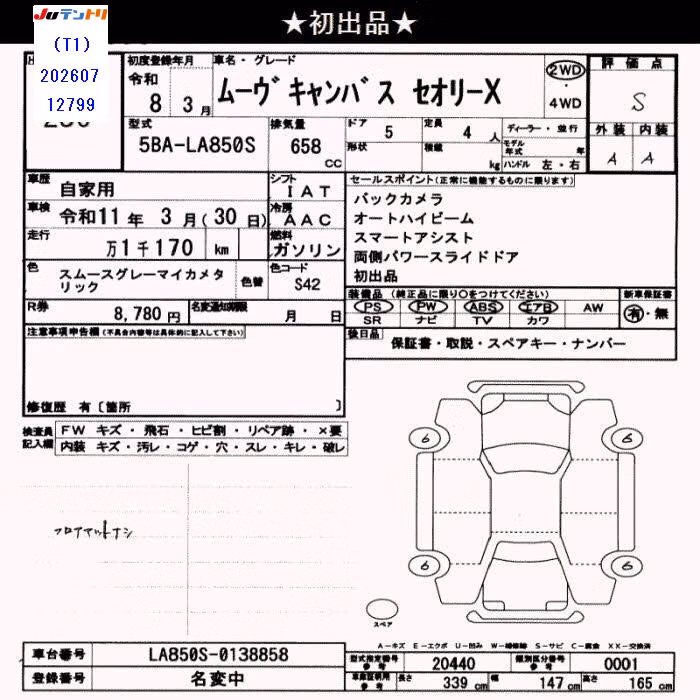 ★初出品★
JUテントリ
(T1)
202607
12799
初度登録年月
令和
8 3月
車名・グレード
ムーヴキャンバス セオリーX
2WD
・
4WD
評価点
S
型式
5BA-LA850S
排気量
658
CC
ドア 5
定員 4 人
形状
積載 kg
ディーラー・並行
モデル年式 年
ハンドル 左・右
外装 内装
A A
車歴 自家用
シフト IAT
車検 令和11年 3月(30日)
冷房 AAC
走行 万1千170 km
燃料 ガソリン
色 スムースグレーマイカメタリック
色替
色コード S42
R券 8,780円
名変通知期限 月 日
セールスポイント(正常に機能するものに限ります)
バックカメラ
オートハイビーム
スマートアシスト
両側パワースライドドア
初出品
装備品(純正品に限り○をつけてください)
PS PW ABS エアB AW
SR ナビ TV カワ
新車保証書
有・無
後日品 保証書・取説・スペアキー・ナンバー
注意事項申告欄(不具合内容等は具体的に記入して下さい)
修復歴 有〔箇所 〕
検査員記入欄
FW キズ・飛石・ヒビ割・リペア跡・×要
内装 キズ・汚レ・コゲ・穴・スレ・キレ・破レ
フロアマットナシ
6 6
6 6
スペア
A-キズ E-エクボ U-凹み W-補修跡 S-サビ C-腐食 XX-交換済
車台番号 LA850S-0138858
登録番号 名変中
型式指定番号 参考 20440
類別区分番号 参考 0001
車庫証明用 参考 長さ 339 cm 幅 147 cm 高さ 165 cm